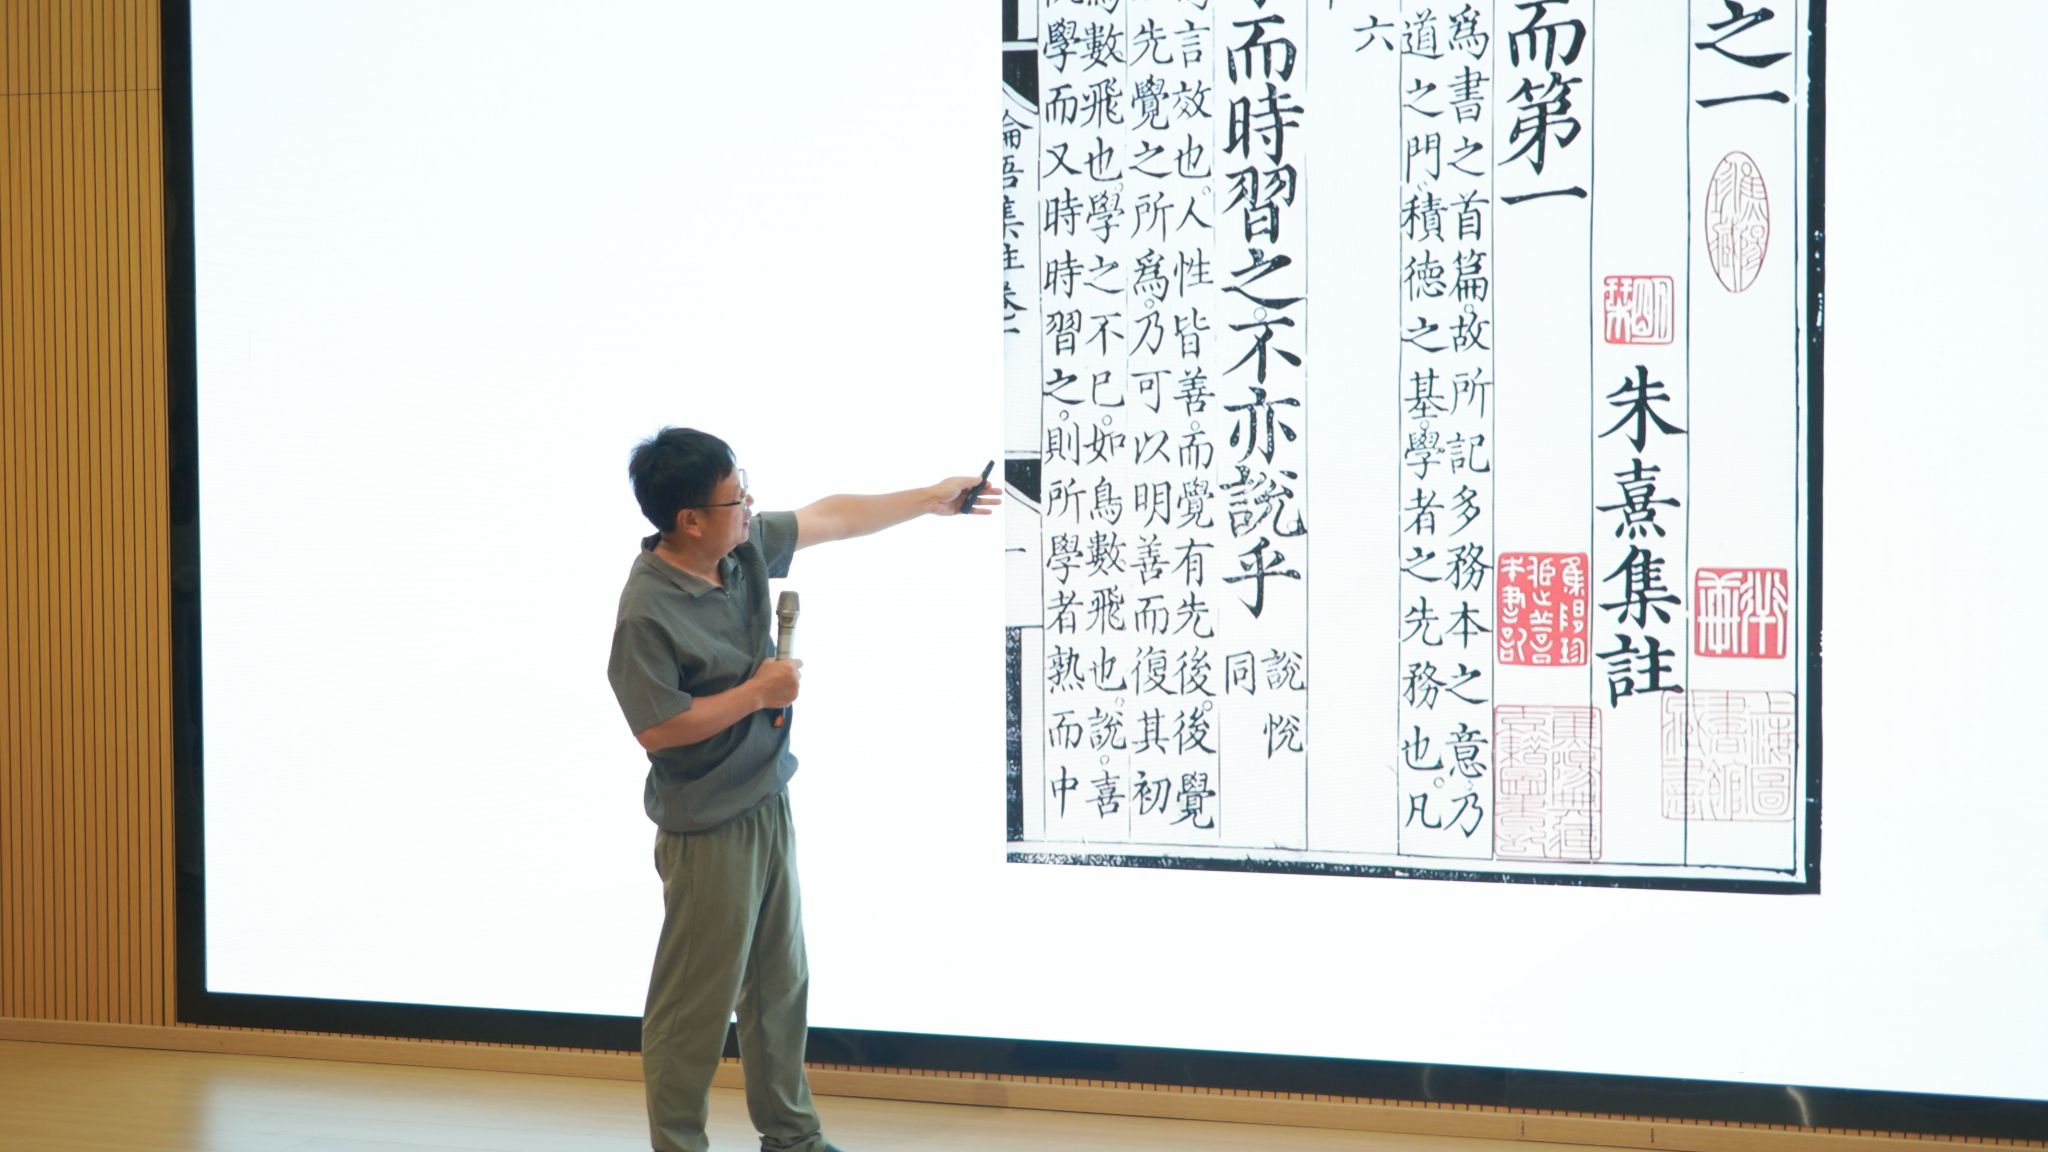 之一
朱熹集註
而第一
為書之首篇故所記多務本之意乃
道之門積德之基學者之先務也凡
六
而時習之不亦說乎
說悅
同
言效也人性皆善而覺有先後後覺
先覺之所爲乃可以明善而復其初
數飛也學之不已如鳥數飛也說喜
學而又時時習之則所學者熟而中